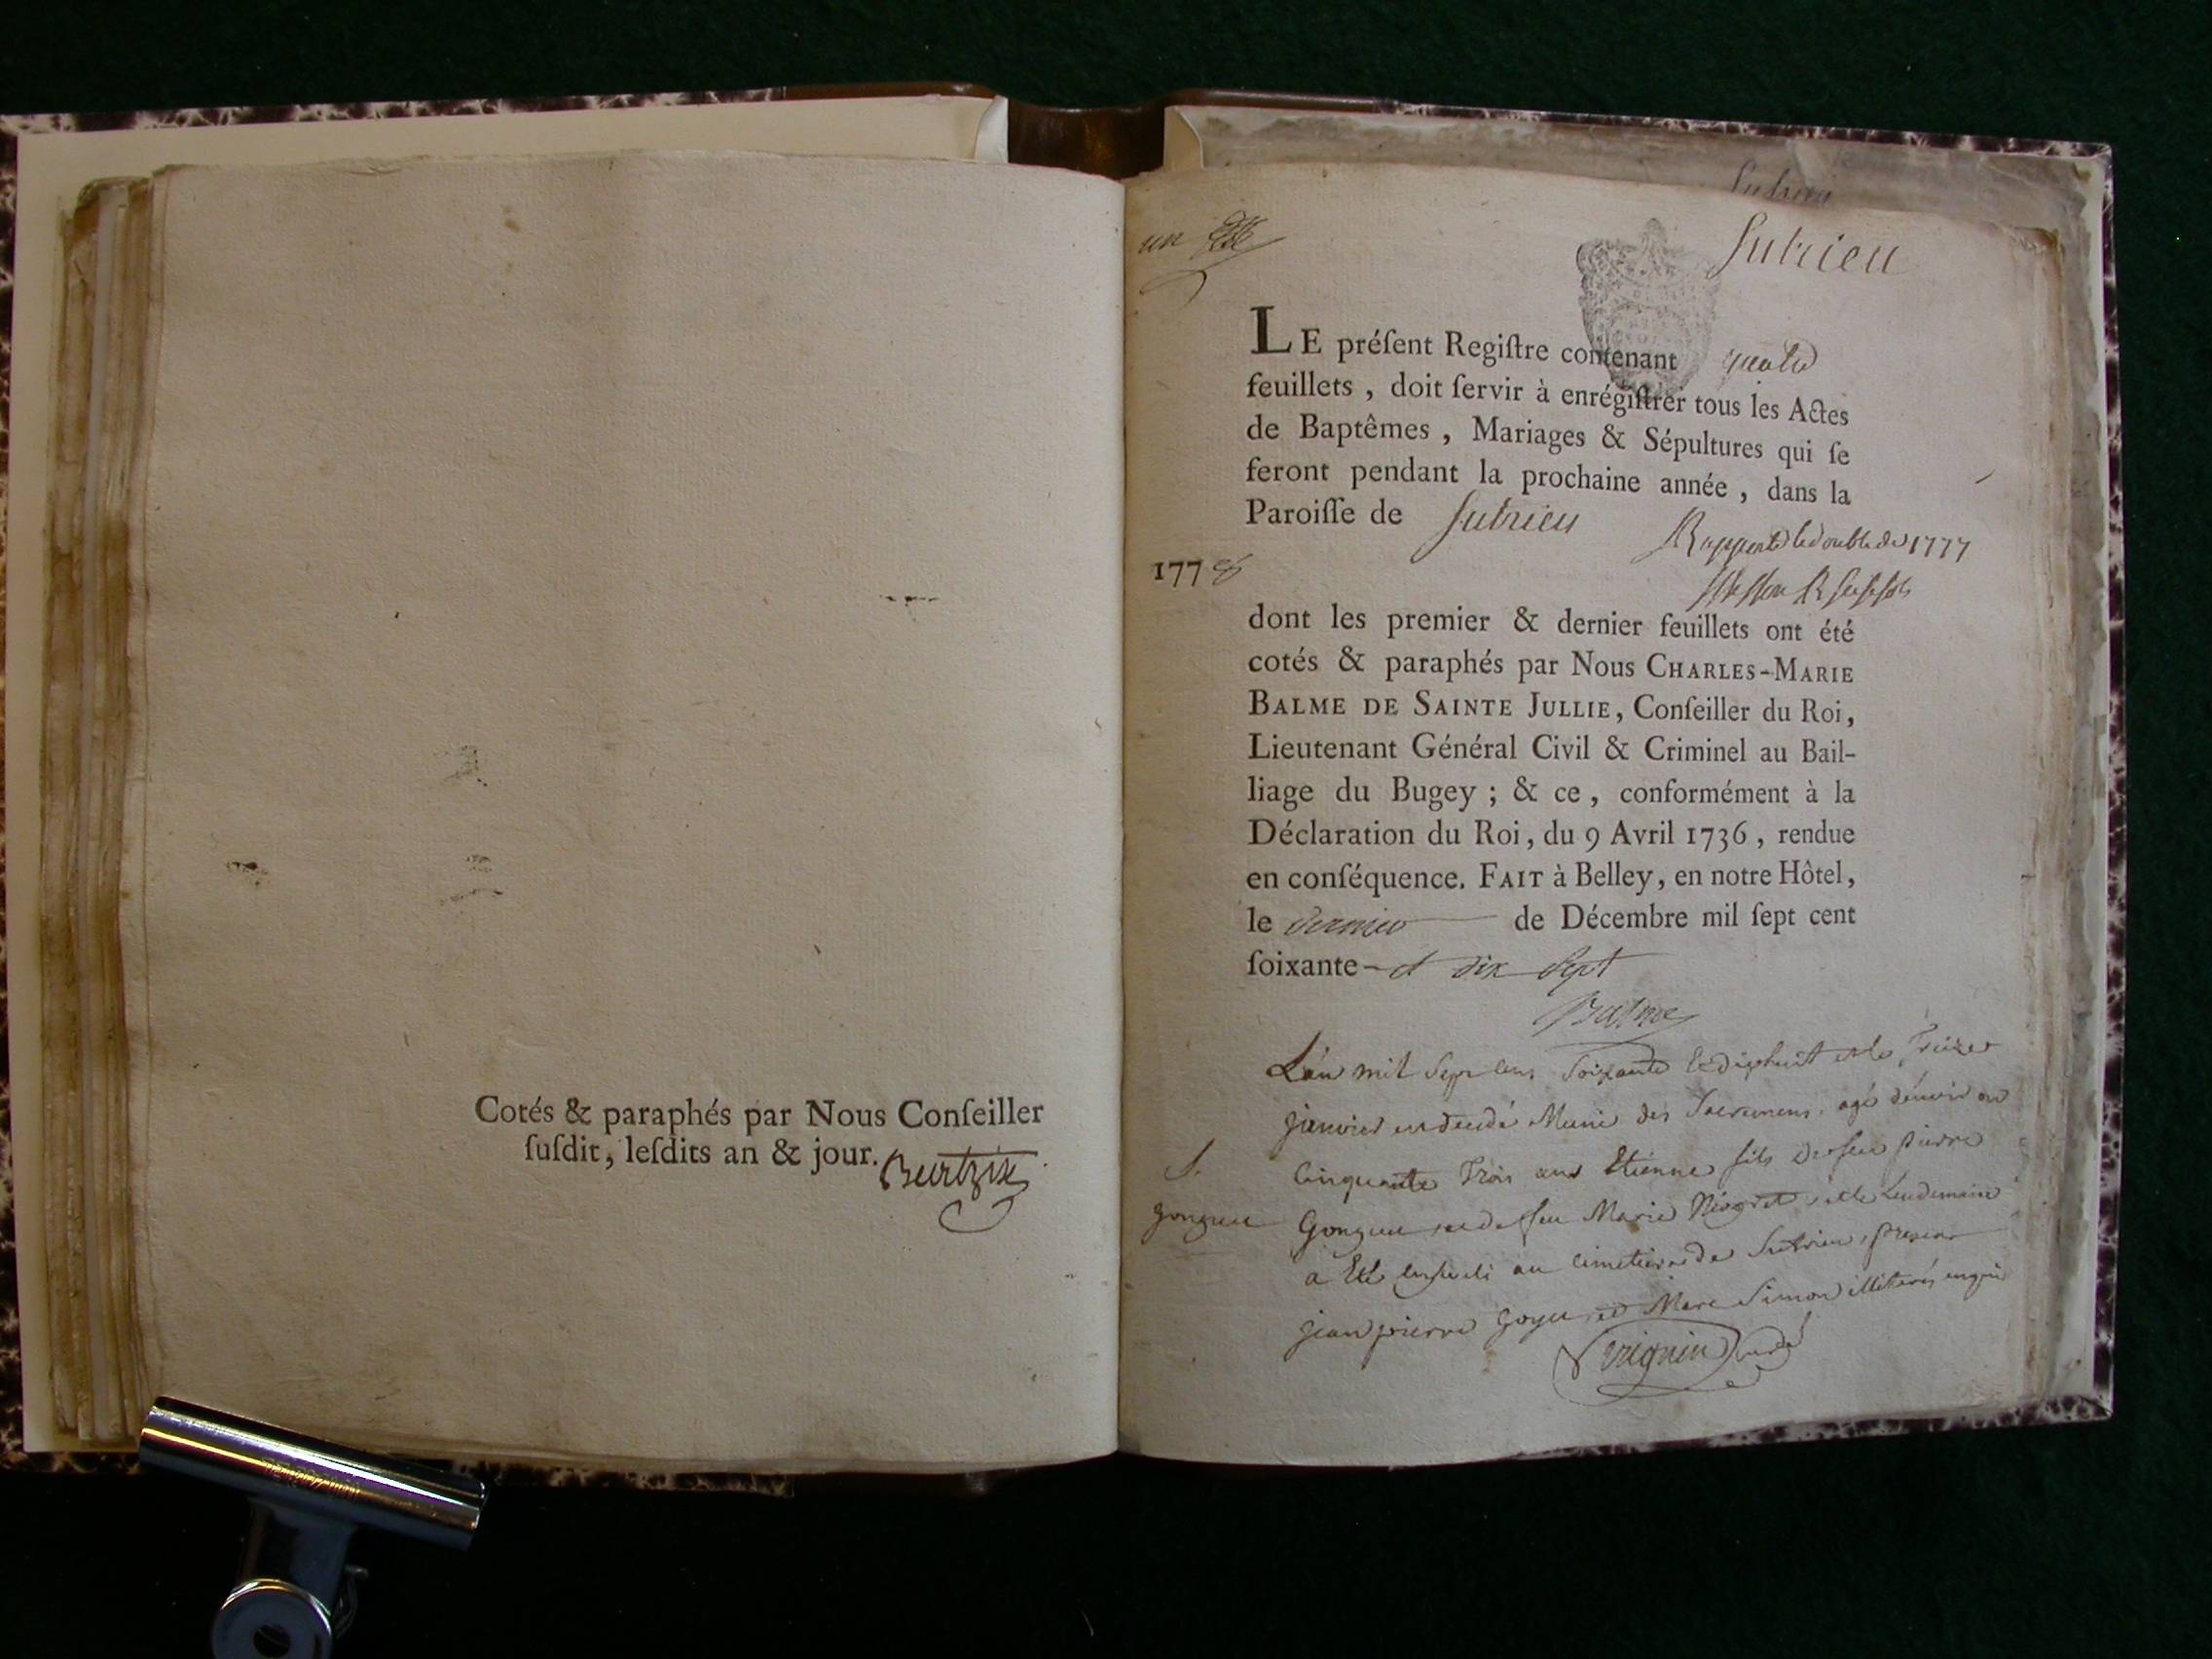 Cotés & paraphés par Nous Conſeiller
ſuſdit, leſdits an & jour.
un
Sutrieu
Sutrieu
LE préſent Regiſtre contenant quatre
feuillets, doit ſervir à enrégiſtrer tous les Actes
de Baptêmes, Mariages & Sépultures qui ſe
feront pendant la prochaine année, dans la
Paroiſſe de Sutrieu
Rapporté le double de 1777
1778
dont les premier & dernier feuillets ont été
cotés & paraphés par Nous CHARLES-MARIE
BALME DE SAINTE JULLIE, Conſeiller du Roi,
Lieutenant Général Civil & Criminel au Bail-
liage du Bugey ; & ce, conformément à la
Déclaration du Roi, du 9 Avril 1736, rendue
en conſéquence. FAIT à Belley, en notre Hôtel,
le dernier de Décembre mil ſept cent
ſoixante - et dix sept
Balme
L'an mil sept cens soixante et dixhuit et le treize
janvier est decedé Muni des Sacremens, agé d'environ
cinquante trois ans Etienne fils de feu pierre
S.
gonguu
Gonguu et de feu Marie et le Lendemain
a Eté enseveli au cimetiere de Sutrieu, presens
jean pierre Goyu et Marc Simon illiterés enquis
curé